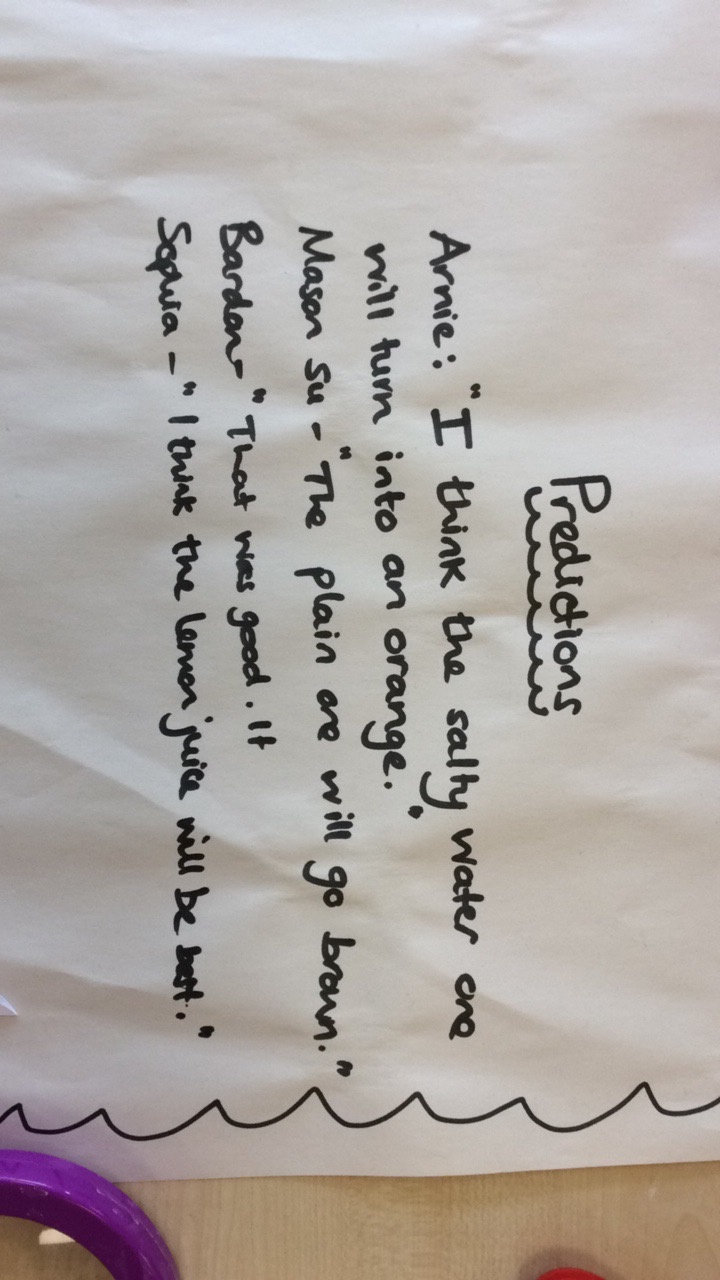 Predictions
Arnie: "I think the salty water one
will turn into an orange."
Mason Su - "The plain one will go brown."
Bardan - "That was good. It
Sophia - "I think the lemon juice will be best."